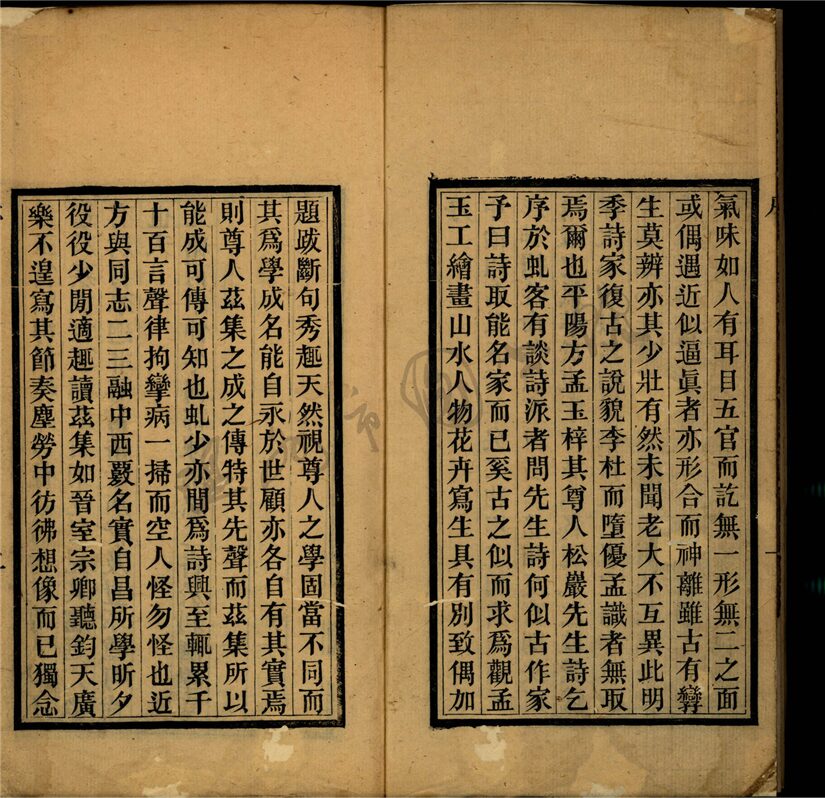 氣味如人有耳目五官而訖無一形無二之面
或偶遇近似逼眞者亦形合而神離雖古有孿
生莫辨亦其少壯有然未聞老大不互異此明
季詩家復古之說貌李杜而墮優孟識者無取
焉爾也平陽方孟玉梓其尊人松嚴先生詩乞
序於虬客有談詩派者問先生詩何似古作家
予曰詩取能名家而已奚古之似而求爲觀孟
玉工繪畫山水人物花卉寫生具有別致偶加
題跋斷句秀趣天然視尊人之學固當不同而
其爲學成名能自永於世顧亦各自有其實焉
則尊人茲集之成之傳特其先聲而茲集所以
能成可傳可知也虬少亦間爲詩興至輒累千
十百言聲律拘攣病一掃而空人怪勿怪也近
方與同志二三融中西覈名實自昌所學昕夕
役役少閒適趣讀茲集如晉室宗卿聽鈞天廣
樂不遑寫其節奏塵勞中彷彿想像而已獨念